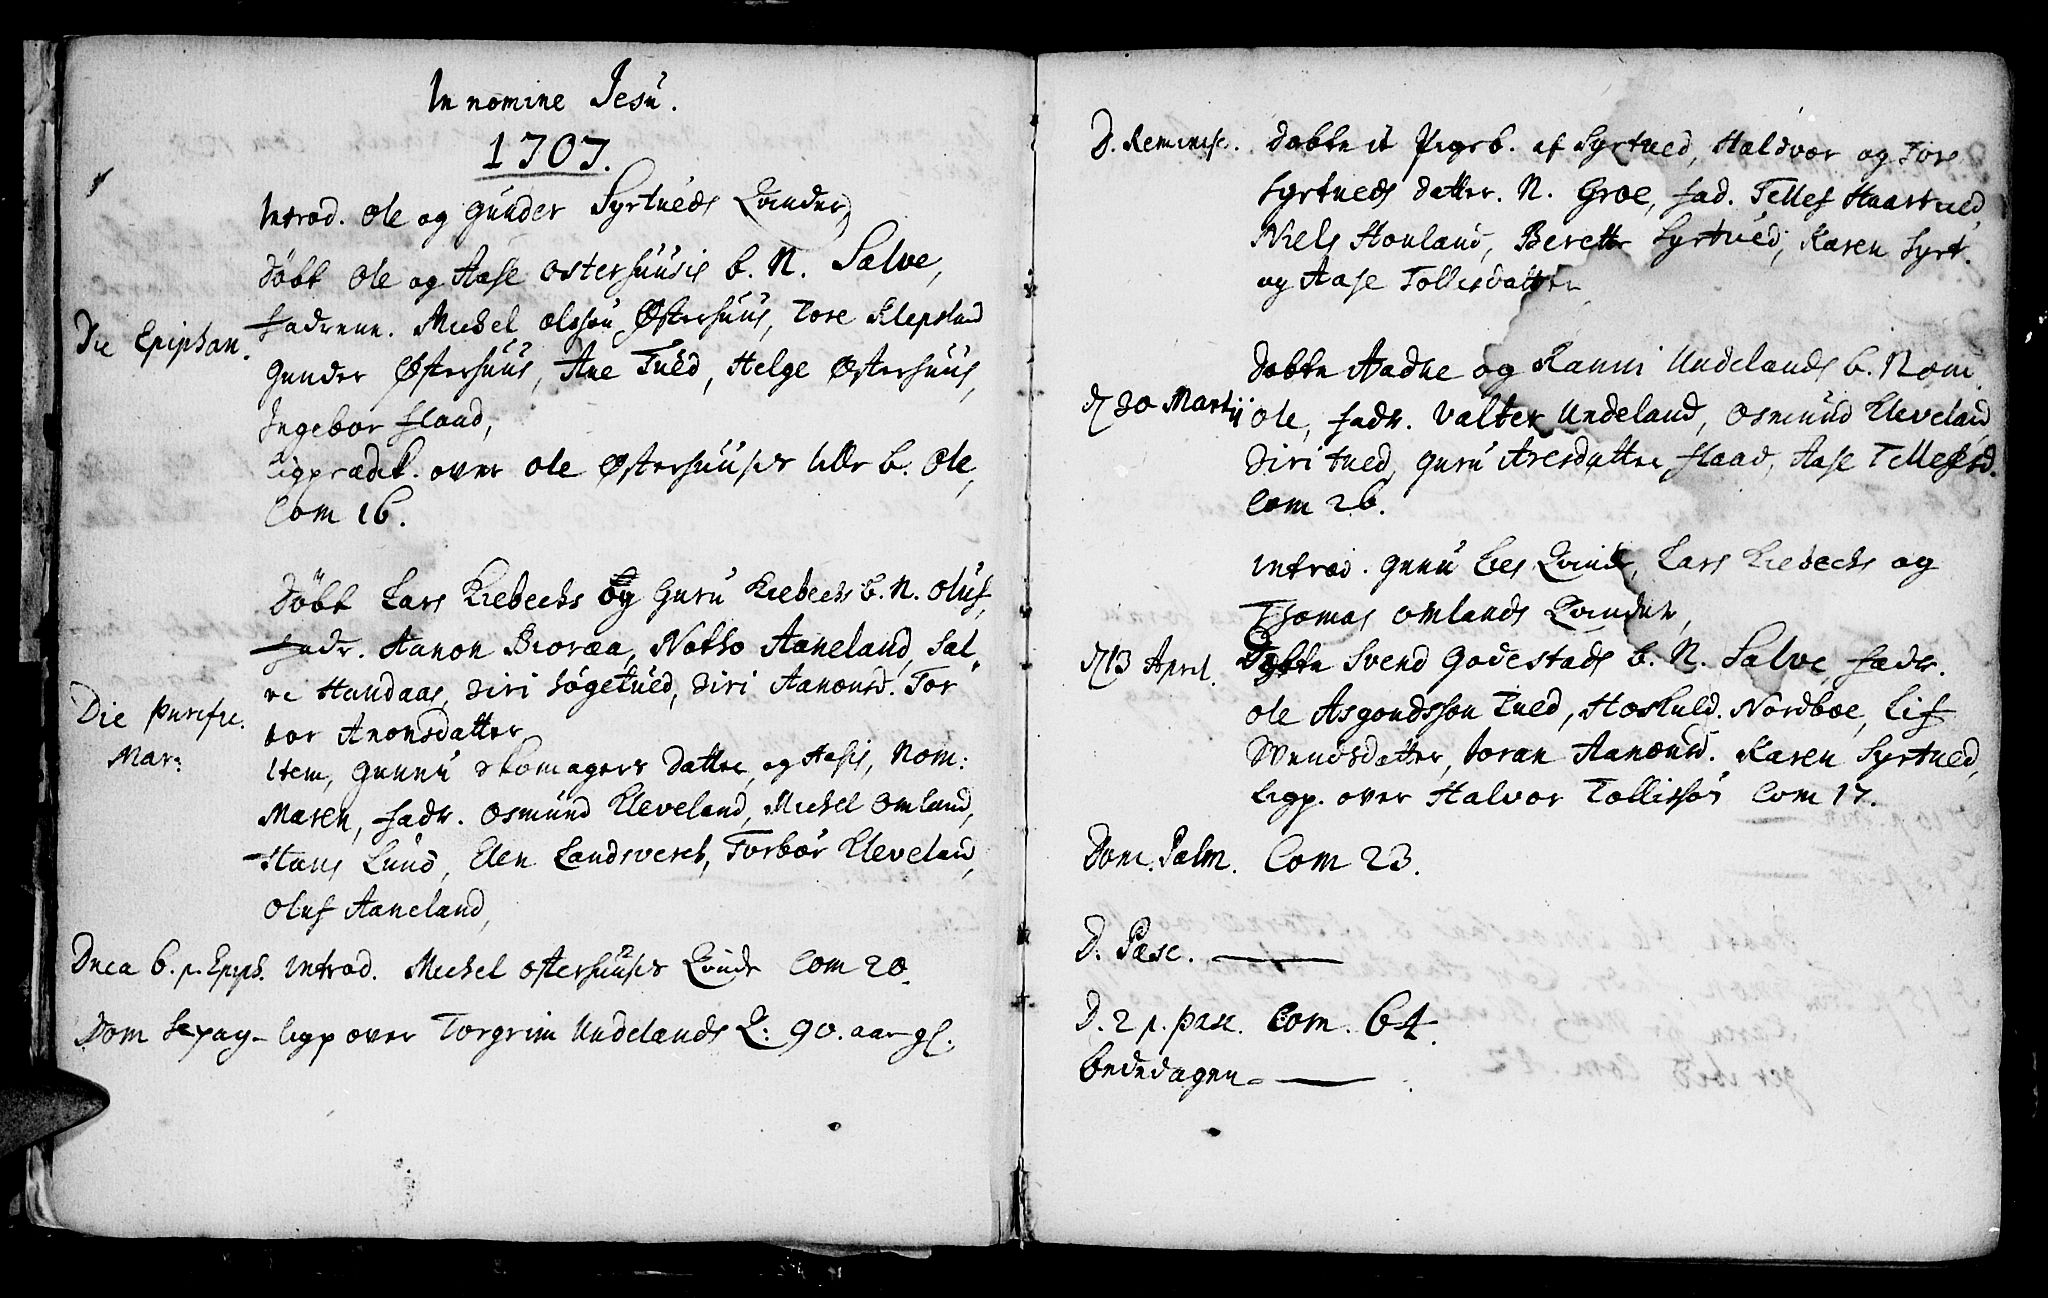 In nomine Jesu.
1707.
Introd. Ole og Gunder Syrtueds Qvinder,
Døbt Ole og Aase Osterhuusis b. N. Salve,
Die Epiphan.
Fadrene. Michel Olsson Østerhuus, Tore Klepsland
Gunder Østerhuus, Ane Tued, Helge Østerhuus,
Ingebor Flaad,
Ligprædik. over Ole Østerhuuses lille b. Ole,
Com 16.
Døbt Lars Kiebechs og Guru Kiebechs b. N. Oluf,
Fadr. Aanon Bioraa, Notho Aaneland, Sal-
ve Handaas, Siri Høgetued, Siri Aanonsd. Tor-
Die Purific.
Mar:
bor Anonsdatter
Item, Gunnu Skomagers Datter, og Aases, Nom:
Maren, Fadr. Osmund Cleveland, Michel Omland,
Hans Lund, Elen Landsverck, Torbor Cleveland,
Oluf Aaneland,
Dnca 6. p. Epiph. Introd. Michel Osterhuuses Qvinde Com 20.
Dom Sepag- Ligp over Torgrim Undelands Q: 90. aar gl.
D. Reminisc. Døbte it Pigeb. af Syrtued, Haldvor og Tore
Syrtueds datter. N. Groe, fad. Tellef Haartued
Niels Honland, Berette Syrtued, Karen Syrt.
og Aase Tollisdatter
Døbte Aadne og Ranni Undelands b. Nom.
d 20 Martij
Ole, Fadr. Valter Undeland, Osmund Cleveland
Siri Tued, Guru Aresdatter Flaad, Aase Tellefsd.
Com 26.
Introd. Gunu Lies Qvinde, Lars Kiebechs og
Thomas Omlands Qvinder,
d 13 April. Døbte Svend Godestads b. N. Salve, Fadr.
Ole Asgondsson Tued, Hoskuld. Nordbøe, Lif
Svendsdatter, Joran Aanonsd. Karen Syrtued,
Ligp. over Halvor Tollisson Com 17.
Dom. Palm. Com 23.
D. Pasc.
D. 2 p. Pasc. Com. 64.
Bededagen